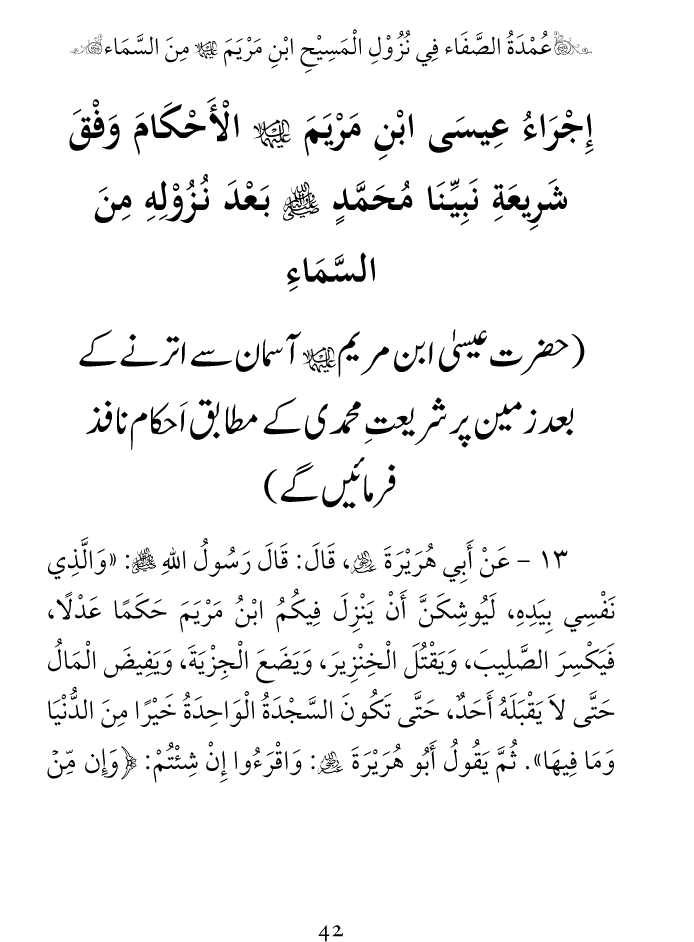 عُمْدَةُ الصَّفَاء فِي نُزُوْلِ الْمَسِيْحِ ابْنِ مَرْيَمَ عليهما السلام مِنَ السَّمَاء
إِجْرَاءُ عِيسَى ابْنِ مَرْيَمَ عليهما السلام الْأَحْكَامَ وَفْقَ
شَرِيعَةِ نَبِيِّنَا مُحَمَّدٍ ﷺ بَعْدَ نُزُوْلِهِ مِنَ
السَّمَاءِ
(حضرت عیسیٰ ابن مریم علیہما السلام آسمان سے اترنے کے
بعد زمین پر شریعتِ محمدی کے مطابق اَحکام نافذ
فرمائیں گے)
١٣ - عَنْ أَبِي هُرَيْرَةَ رضي الله عنه، قَالَ: قَالَ رَسُولُ اللهِ ﷺ: «وَالَّذِي
نَفْسِي بِيَدِهِ، لَيُوشِكَنَّ أَنْ يَنْزِلَ فِيكُمُ ابْنُ مَرْيَمَ حَكَمًا عَدْلًا،
فَيَكْسِرَ الصَّلِيبَ، وَيَقْتُلَ الْخِنْزِيرَ، وَيَضَعَ الْجِزْيَةَ، وَيَفِيضَ الْمَالُ
حَتَّى لاَ يَقْبَلَهُ أَحَدٌ، حَتَّى تَكُونَ السَّجْدَةُ الْوَاحِدَةُ خَيْرًا مِنَ الدُّنْيَا
وَمَا فِيهَا». ثُمَّ يَقُولُ أَبُو هُرَيْرَةَ رضي الله عنه: وَاقْرَءُوا إِنْ شِئْتُمْ: ﴿وَإِن مِّنْ
42